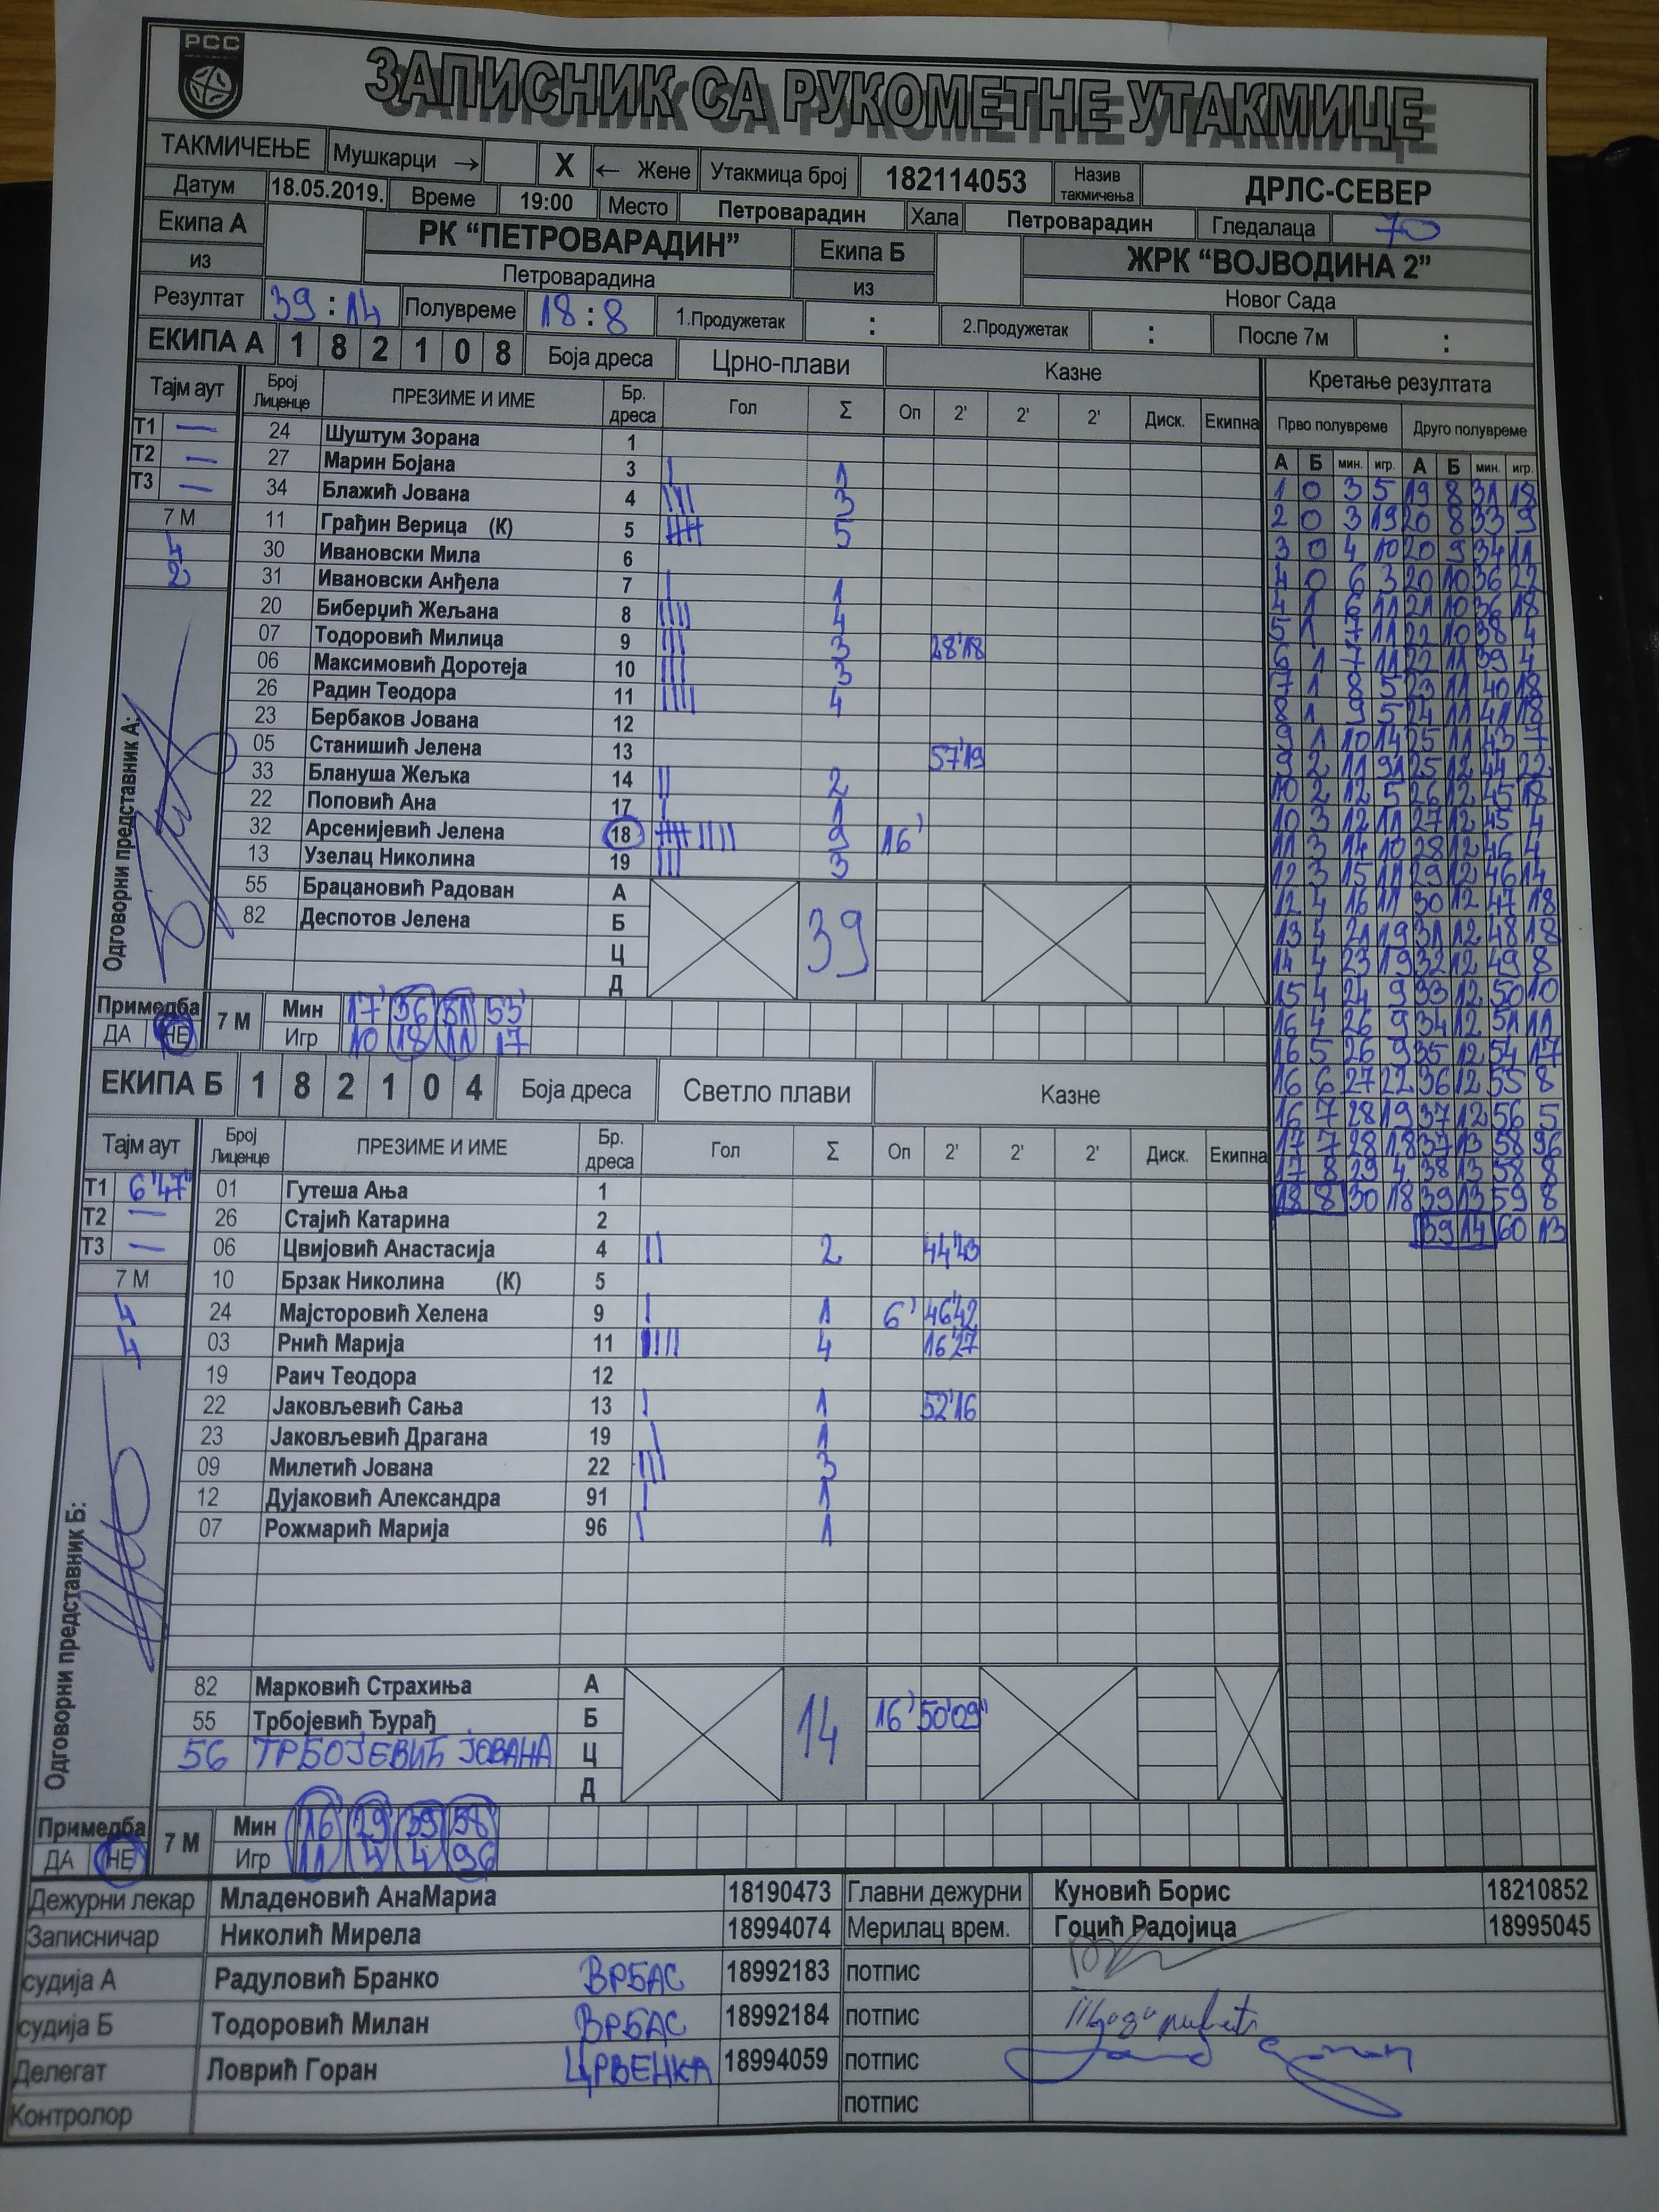 РСС
ЗАПИСНИК СА РУКОМЕТНЕ УТАКМИЦЕ
ТАКМИЧЕЊЕ Мушкарци → X ← Жене Утакмица број 182114053 Назив такмичења ДРЛС-СЕВЕР
Датум 18.05.2019. Време 19:00 Место Петроварадин Хала Петроварадин Гледалаца 70
Екипа А РК “ПЕТРОВАРАДИН” Екипа Б ЖРК “ВОЈВОДИНА 2”
из Петроварадина из Новог Сада
Резултат 39 : 14 Полувреме 18 : 8 1.Продужетак : 2.Продужетак : После 7м :
ЕКИПА А 1 8 2 1 0 8 Боја дреса Црно-плави Казне Кретање резултата
Тајм аут Број Лиценце ПРЕЗИМЕ И ИМЕ Бр. дреса Гол Σ Оп 2' 2' 2' Диск. Екипна Прво полувреме Друго полувреме
А Б мин. игр. А Б мин. игр.
Т1 — 24 Шуштум Зорана 1
Т2 — 27 Марин Бојана 3 | 1
Т3 — 34 Блажић Јована 4 |||| 3
7 М 11 Грађин Верица (К) 5 5
4 30 Ивановски Мила 6
2 31 Ивановски Анђела 7 | 1
20 Биберџић Жељана 8 |||| 4
07 Тодоровић Милица 9 ||| 3 28'18
06 Максимовић Доротеја 10 ||| 3
26 Радин Теодора 11 |||| 4
23 Бербаков Јована 12
05 Станишић Јелена 13 57'19
33 Блануша Жељка 14 || 2
22 Поповић Ана 17 | 1
32 Арсенијевић Јелена 18 9 16'
13 Узелац Николина 19 ||| 3
55 Брацановић Радован А
82 Деспотов Јелена Б
Ц
Д
39
Одговорни представник А:
1 0 3 5 19 8 31 18
2 0 3 19 20 8 33 9
3 0 4 10 20 9 34 11
4 0 6 3 20 10 36 22
4 1 6 11 21 10 36 18
5 1 7 11 22 10 38 4
6 1 7 11 22 11 39 4
7 1 8 5 23 11 40 18
8 1 9 5 24 11 41 18
9 1 10 14 25 11 43 7
9 2 11 91 25 12 44 22
10 2 12 5 26 12 45 18
10 3 12 11 27 12 45 4
11 3 14 10 28 12 46 4
12 3 15 11 29 12 46 14
12 4 16 11 30 12 47 18
13 4 21 19 31 12 48 18
14 4 23 19 32 12 49 8
15 4 24 9 33 12 50 10
16 4 26 9 34 12 51 11
16 5 26 9 35 12 54 17
16 6 27 22 36 12 55 8
16 7 28 19 37 12 56 5
17 7 28 18 37 13 58 96
17 8 29 4 38 13 58 8
18 8 30 18 39 13 59 8
39 14 60 13
Примедба 7 М Мин 17' 36 51 53'
ДА НЕ Игр 10 18 11 17
ЕКИПА Б 1 8 2 1 0 4 Боја дреса Светло плави Казне
Тајм аут Број Лиценце ПРЕЗИМЕ И ИМЕ Бр. дреса Гол Σ Оп 2' 2' 2' Диск. Екипна
Т1 6'47" 01 Гутеша Ања 1
Т2 — 26 Стајић Катарина 2
Т3 — 06 Цвијовић Анастасија 4 || 2 44'43
7 М 10 Брзак Николина (К) 5
4 24 Мајсторовић Хелена 9 | 1 6' 46'42
4 03 Рнић Марија 11 |||| 4 16'27
19 Раич Теодора 12
22 Јаковљевић Сања 13 | 1 52'16
23 Јаковљевић Драгана 19 | 1
09 Милетић Јована 22 ||| 3
12 Дујаковић Александра 91 | 1
07 Рожмарић Марија 96 | 1
82 Марковић Страхиња А
55 Трбојевић Ђурађ Б 16' 50'09"
56 ТРБОЈЕВИЋ ЈОВАНА Ц
Д
14
Одговорни представник Б:
Примедба 7 М Мин 16 29 39 58
ДА НЕ Игр 11 4 4 96
Дежурни лекар Младеновић АнаМариа 18190473 Главни дежурни Куновић Борис 18210852
Записничар Николић Мирела 18994074 Мерилац врем. Гоцић Радојица 18995045
судија А Радуловић Бранко ВРБАС 18992183 потпис
судија Б Тодоровић Милан ВРБАС 18992184 потпис
Делегат Ловрић Горан ЦРВЕНКА 18994059 потпис
Контролор потпис